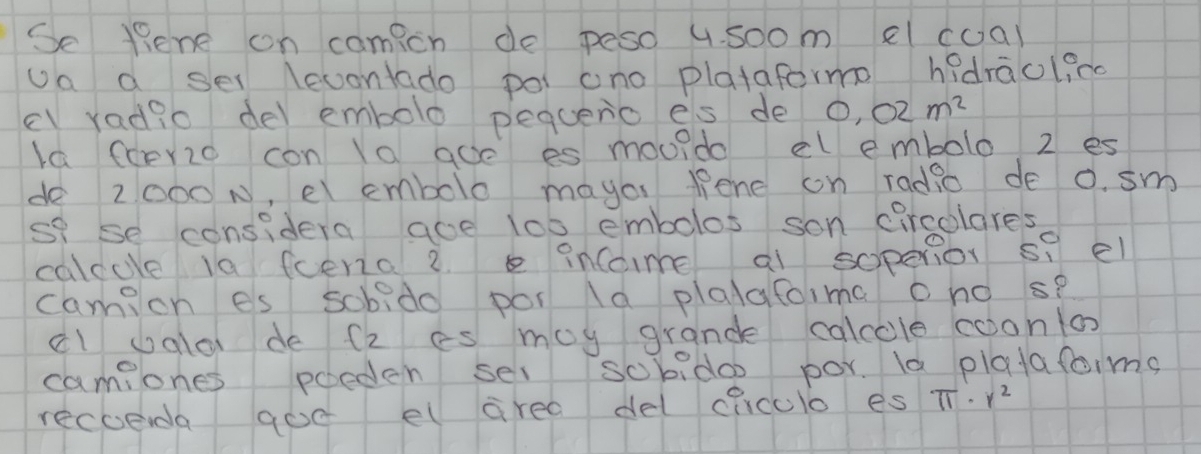 Se tiene un camión de peso 4.500m el cual
va a ser levantado por una plataforma hidráulica
el radio del embolo pequeño es de 0,02 m²
la fuerza con la que es movido el embolo 2 es
de 2.000 N, el embolo mayor tiene un radio de 0.5m
si se considera que los embolos son circulares
calcule la fuerza 2. e informe al superior si el
camion es subido por la plataforma o no si
el valor de f2 es muy grande calcule cuantos
camiones pueden ser subidos por la plataforma
recuerda que el área del circulo es π.r²